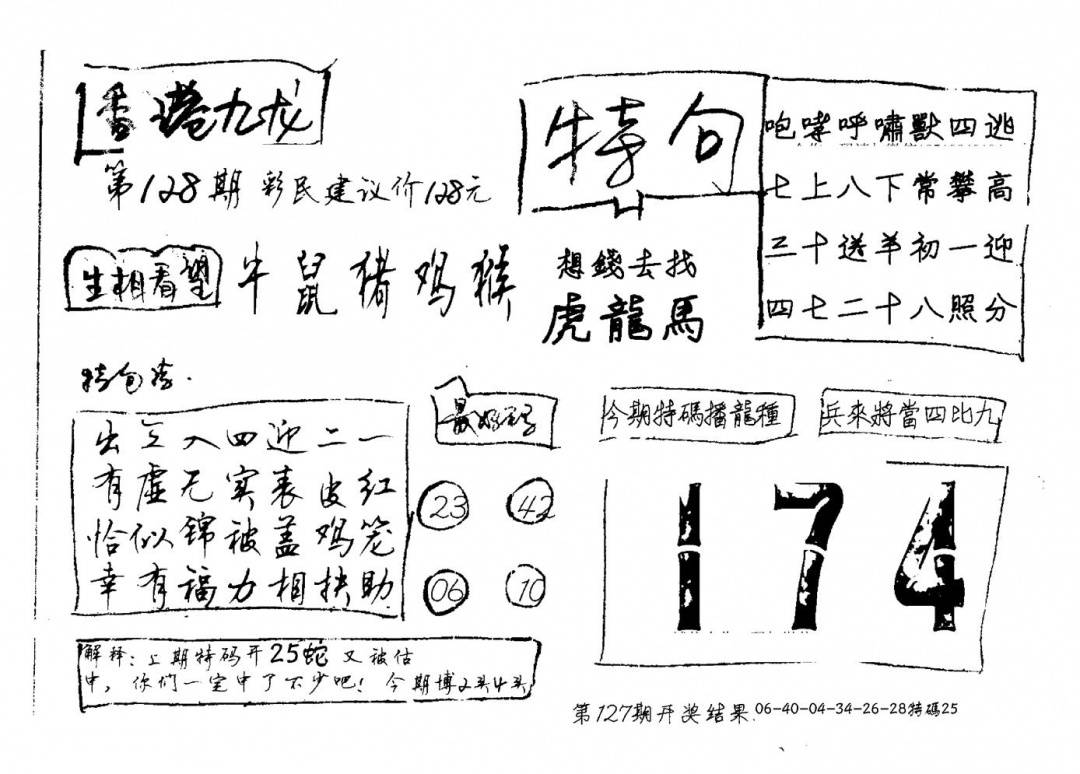 香港九龙
第128期 彩民建议价128元
特句
咆哮呼嘯獸四逃
七上八下常攀高
三十送羊初一迎
四七二十八照分
生相看望
牛鼠猪鸡猴
想錢去找
虎龍馬
特包
出入四迎二一
有虚无实表皮红
恰似锦被盖鸡笼
幸有福力相扶助
最好
23 42
06 10
今期特碼播龍種
兵來將當四比九
174
解释:上期特码开25蛇又被估
中,你们一定中了不少吧!今期博2头4头
第127期开奖结果.06-40-04-34-26-28特碼25